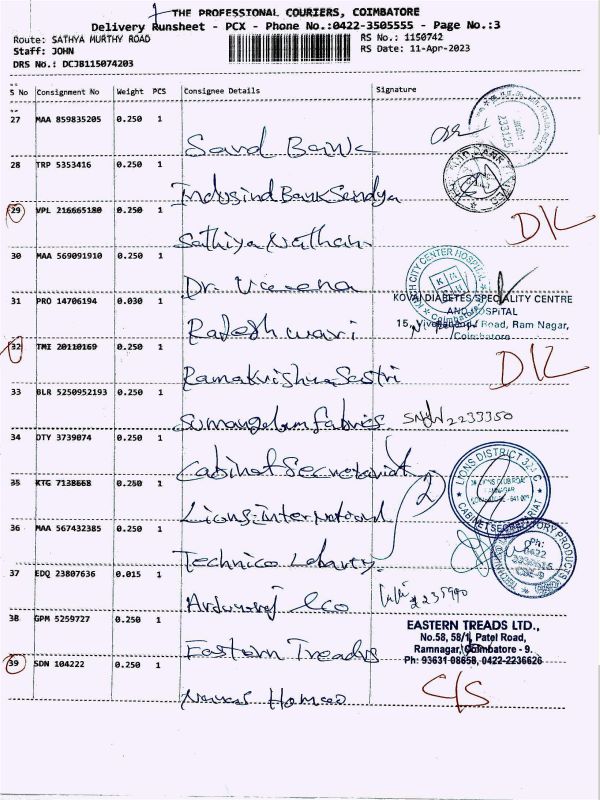 THE PROFESSIONAL COURIERS, COIMBATORE
Delivery Runsheet - PCX - Phone No.:0422-3505555 - Page No.:3
Route: SATHYA MURTHY ROAD RS No.: 1150742
Staff: JOHN RS Date: 11-Apr-2023
DRS No.: DCJB115074203
S No Consignment No Weight PCS Consignee Details Signature
27 MAA 859835205 0.250 1
28 TRP 5353416 0.250 1
Indusind Bank Sandya
29 VPL 216665180 0.250 1 D/L
Sathiya Nathan
30 MAA 569091910 0.250 1
Dr.
KOVAI DIABETES SPECIALITY CENTRE
AND HOSPITAL
31 PRO 14706194 0.030 1
15, Road, Ram Nagar,
Coimbatore
Rajeshwari
32 TMI 20110169 0.250 1 D/L
Ramakrishna Sastri
33 BLR 5250952193 0.250 1
Sumangalam Fabrics 2233350
34 DTY 3739074 0.250 1
Cabinet Secretariat
LIONS DISTRICT 324 C
CABINET SECRETARIAT
35 KTG 7138668 0.250 1
Lions International
36 MAA 567432385 0.250 1
Ph:
0422
Technico
37 EDQ 23807636 0.015 1
38 GPM 5259727 0.250 1
EASTERN TREADS LTD.,
No.58, 58/1, Patel Road,
Ramnagar, Coimbatore - 9.
Ph: 93631-08658, 0422-2236626
Eastern Treads
39 SDN 104222 0.250 1 C/S
Homeo